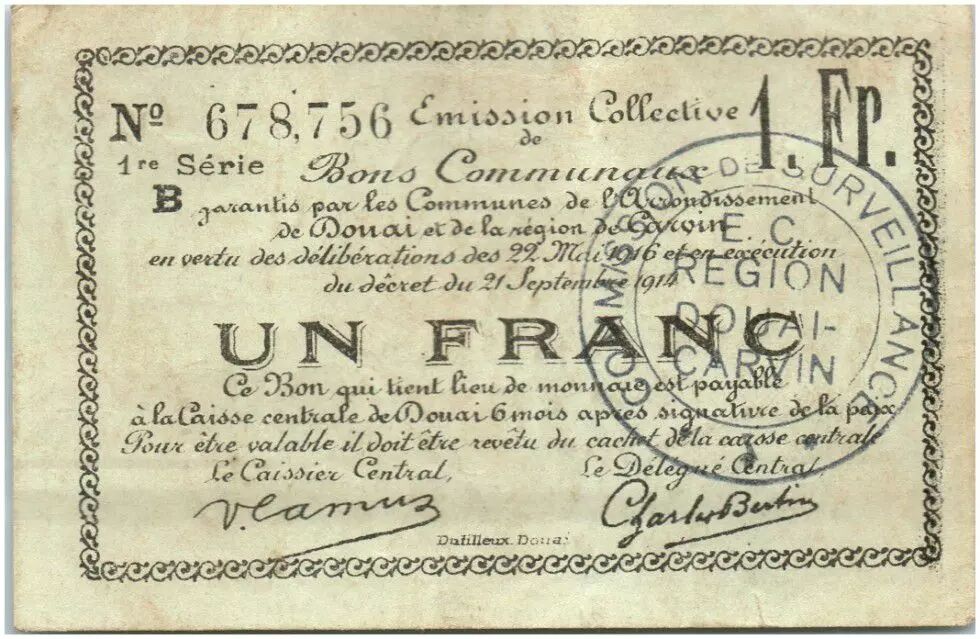 Nº 678,756 Emission Collective 1. Fr.
de
1re Série Bons Communaux
B garantis par les Communes de l'Arrondissement
de Douai et de la région de Carvin
en vertu des délibérations des 22 Mai 1916 et en exécution
du décret du 21 Septembre 1914
UN FRANC
Ce Bon qui tient lieu de monnaie est payable
à la Caisse centrale de Douai 6 mois après signature de la paix
Pour être valable il doit être revêtu du cachet de la caisse centrale
Le Caissier Central, Le Délégué Central
V. Camus Charles Bertin
Dutilleux. Douai
COMMISSION DE SURVEILLANCE
E. C.
REGION
DOUAI-
CARVIN